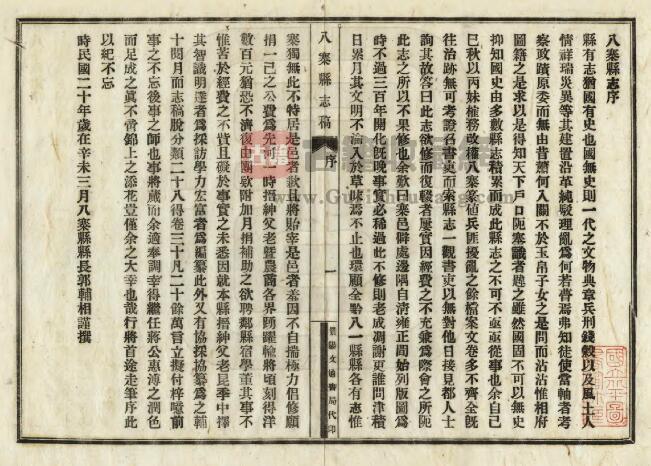 八寨縣志序
縣有志猶國有史也國無史則一代之文物典章兵刑錢穀以及風土人
情祥瑞災異等其建置沿革純駁理亂為何若瞢焉弗知徒使當軸者考
察政蹟原委而無由昔蕭何入關不於玉帛子女之是問而沾沾惟相府
圖籍之是求以是得知天下戶口阨塞識者韙之雖然國固不可以無史
抑知國史由多數縣志積累而成此縣志之不可不亟亟從事也余自己
巳秋以丙妹榷務改權八寨篆值兵匪擾亂之餘檔案文卷多不齊全旣
往治跡無可考證名書吏而索縣志一觀書吏以無對他日接見都人士
詢其故答曰此志欲修而復輟者屢實因經費之不充兼為際會之所阨
此志之所以不果修也余歎曰寨邑僻處邊隅自清雍正間始列版圖為
時不過三百年開化旣晚事實必稀過此不修則老成凋謝更誰問津積
日累月其文明不淪入於草昧焉不止也環顧全黔八一縣縣各有志惟
八寨縣志稿
序
一
景陽文通書局代印
寨獨無此不特居是邑者歉且將貽宰是邑者羞因不自揣極力倡修願
捐一己之公費為先河一時搢紳父老曁農商各界踴躍輸將頃刻得洋
數百元猶恐不濟復由團欵附加月捐補助之欲聘鄰縣宿學董其事不
惟苦於經費之不貲且礙於事實之未悉因就本縣搢紳父老昆季中擇
其智識明達者為採訪學力宏富者為編纂此外又有協採協纂為之輔
十閱月而志稿脫分類二十八得卷三十凡二十餘萬言立擬付梓噫前
事之不忘後事之師也事將蕆而余適奉調幸得繼任蔣公惠溥之潤色
而足成之眞不啻錦上之添花豈僅余之大幸也哉行將首途走筆序此
以紀不忘
時民國二十年歲在辛未三月八寨縣縣長郭輔相謹撰
古籍
www.GuJiShuFang.com